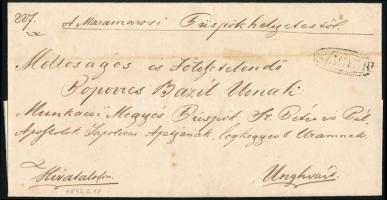 227. A Maramarosi Püspökhelyettestöl.
Méltoságos és Fötisztelendö
Popovics Bazil Urnak
Munkácsi Megyés Püspök, Sz. Péter és Pál
Apostolok Tapolczai Apátjának, leghegyesb Uramnak
Hivatalosan.
Unghvárt.
1842.2.18